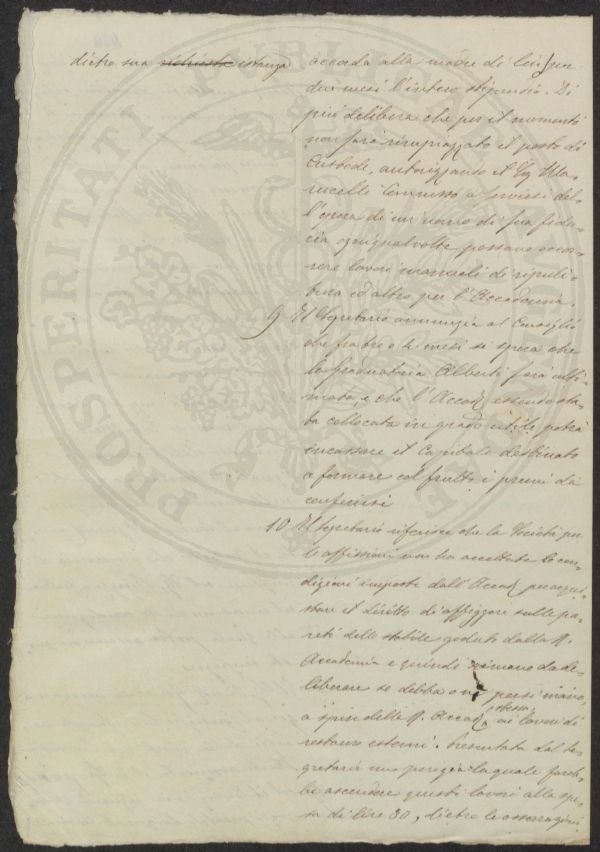 dietro sua richiesta istanza
accorda alla madre di lui per
due mesi l'intero stipendio. Di
più delibera che per il momento
non sarà rimpiazzato il posto di
Custode, autorizzando il Sig. Ma-
rucelli Commesso a servirsi del-
l'opera di un uomo di sua fidu-
cia ogniqualvolta possano occor-
rere lavori manuali di ripuli-
tura ed altro per l'Accademia.
9 Il Segretario annunzia al Consiglio
che fra tre o 4 mesi si spera che
la graduatoria Alberti sarà ulti-
mata, e che l'Accad. essendo sta-
ta collocata in grado utile potrà
incassare il Capitale destinato
a formare col frutto i premi da
conferirsi
10 Il Segretario riferisce che la Società per
le affissioni non ha accettate le con-
dizioni imposte dall'Accad. per acqui-
stare il diritto di affiggere sulle pa-
reti dello stabile goduto dalla R.
Accademia e quindi rimane da de-
liberare se debba o no porsi mano
a spese della R. Accad. stessa ai lavori di
restauro esterni. Presentata dal Se-
gretario una perizia la quale fareb-
be ascendere questi lavori alla spe-
sa di lire 80, dietro le osservazioni
PROSPERITATI PUBLICAE